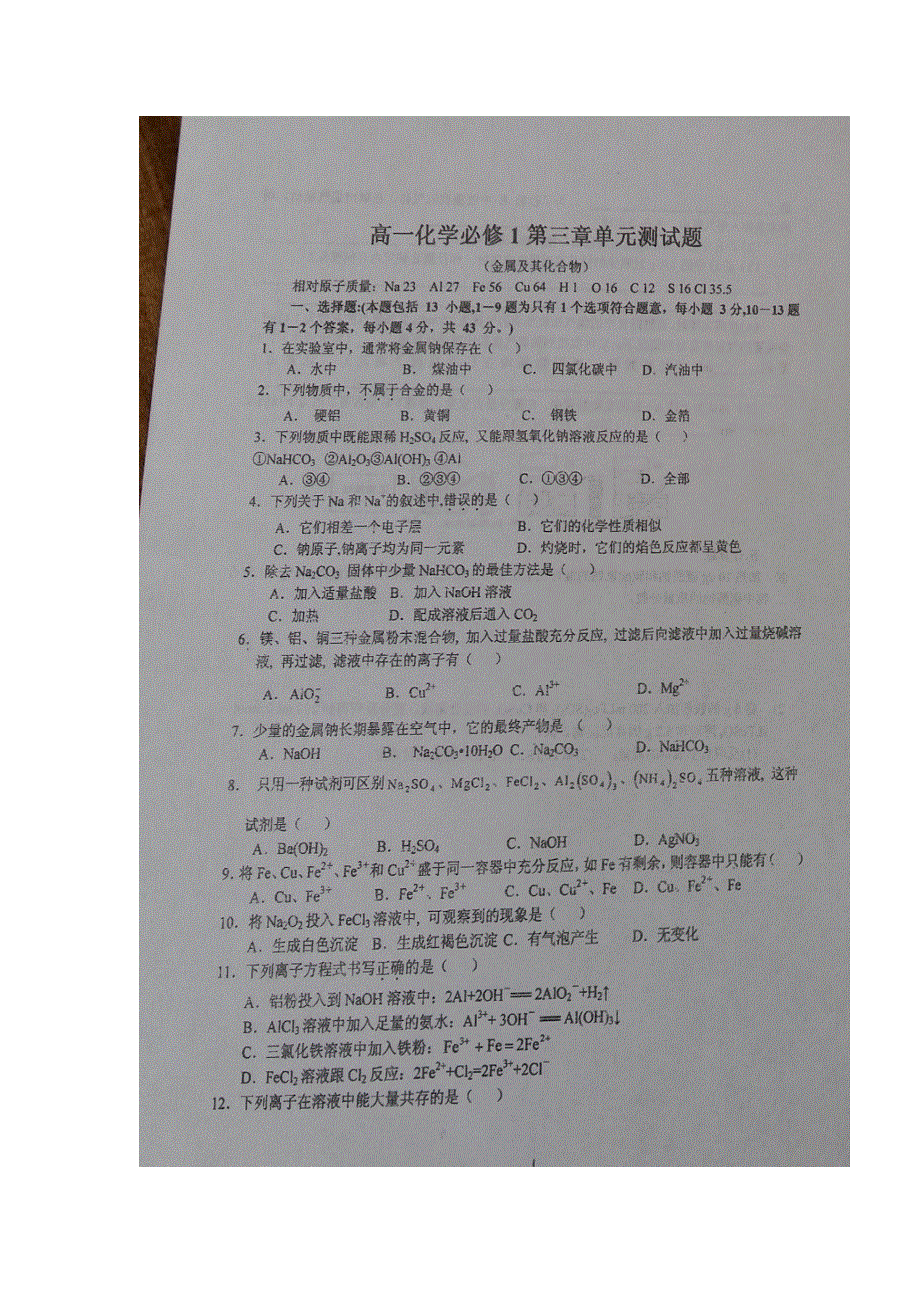 高一化学必修 1 第三章单元测试题
（金属及其化合物）
相对原子质量：Na 23 Al 27 Fe 56 Cu 64 H 1 O 16 C 12 S 16 Cl 35.5
一、选择题:(本题包括 13 小题,1－9 题为只有 1 个选项符合题意，每小题 3 分,10－13 题
有 1－2 个答案，每小题 4 分，共 43 分。)
1．在实验室中，通常将金属钠保存在（ ）
A．水中 B． 煤油中 C． 四氯化碳中 D．汽油中
2．下列物质中，不属于合金的是（ ）
A． 硬铝 B．黄铜 C． 钢铁 D．金箔
3．下列物质中既能跟稀 H₂SO₄ 反应, 又能跟氢氧化钠溶液反应的是（ ）
①NaHCO₃ ②Al₂O₃③Al(OH)₃ ④Al
A．③④ B．②③④ C．①③④ D．全部
4．下列关于 Na 和 Na⁺的叙述中,错误的是（ ）
A．它们相差一个电子层 B．它们的化学性质相似
C．钠原子,钠离子均为同一元素 D．灼烧时，它们的焰色反应都呈黄色
5．除去 Na₂CO₃ 固体中少量 NaHCO₃ 的最佳方法是（ ）
A．加入适量盐酸 B．加入 NaOH 溶液
C．加热 D．配成溶液后通入 CO₂
6．镁、铝、铜三种金属粉末混合物, 加入过量盐酸充分反应, 过滤后向滤液中加入过量烧碱溶
液, 再过滤, 滤液中存在的离子有（ ）
A．AlO₂⁻ B．Cu²⁺ C．Al³⁺ D．Mg²⁺
7．少量的金属钠长期暴露在空气中，它的最终产物是 （ ）
A．NaOH B． Na₂CO₃•10H₂O C．Na₂CO₃ D．NaHCO₃
8． 只用一种试剂可区别 Na₂SO₄、MgCl₂、FeCl₂、Al₂(SO₄)₃、(NH₄)₂SO₄ 五种溶液, 这种
试剂是（ ）
A．Ba(OH)₂ B．H₂SO₄ C．NaOH D．AgNO₃
9．将 Fe、Cu、Fe²⁺、Fe³⁺和 Cu²⁺盛于同一容器中充分反应, 如 Fe 有剩余, 则容器中只能有（ ）
A．Cu、Fe³⁺ B．Fe²⁺、Fe³⁺ C．Cu、Cu²⁺、Fe D．Cu、Fe²⁺、Fe
10．将 Na₂O₂ 投入 FeCl₃ 溶液中, 可观察到的现象是（ ）
A．生成白色沉淀 B．生成红褐色沉淀 C．有气泡产生 D．无变化
11．下列离子方程式书写正确的是（ ）
A．铝粉投入到 NaOH 溶液中：2Al+2OH⁻══ 2AlO₂⁻+H₂↑
B．AlCl₃ 溶液中加入足量的氨水：Al³⁺+ 3OH⁻ ══ Al(OH)₃↓
C．三氯化铁溶液中加入铁粉：Fe³⁺ + Fe = 2Fe²⁺
D．FeCl₂ 溶液跟 Cl₂ 反应：2Fe²⁺+Cl₂=2Fe³⁺+2Cl⁻
12．下列离子在溶液中能大量共存的是（ ）